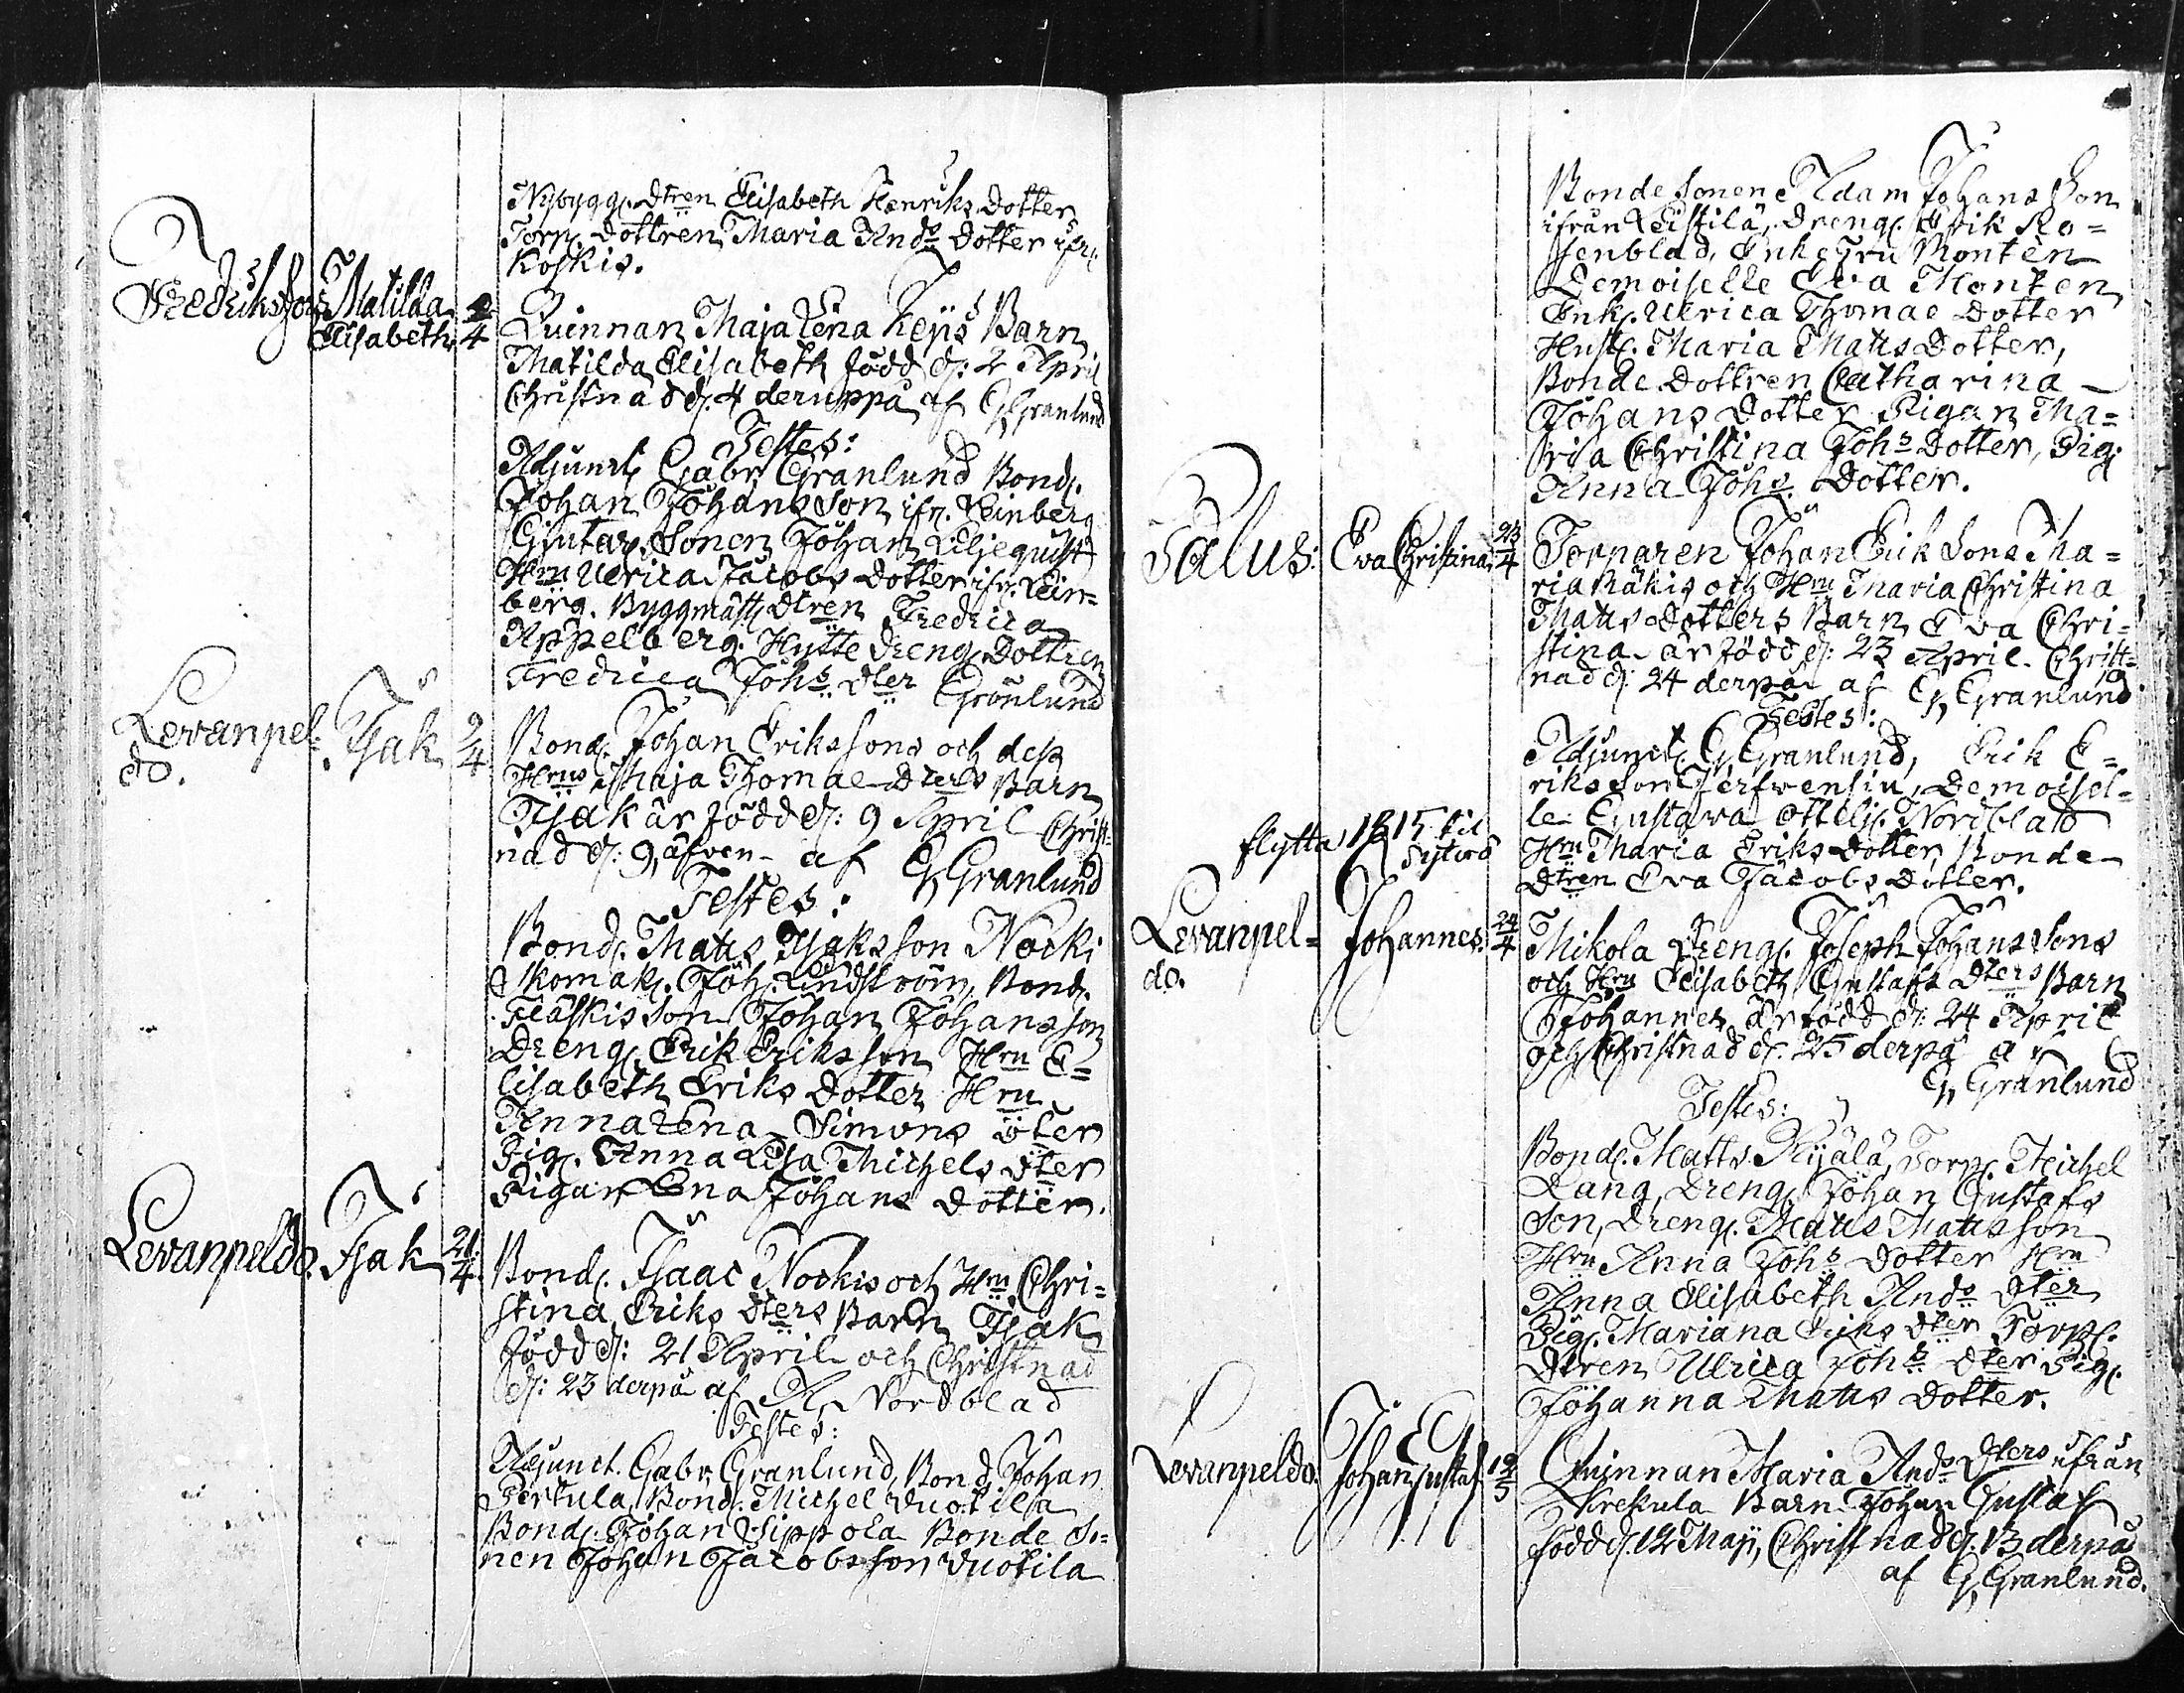 Nybygg. Dtren Elisabeth Henriks Dotter
Torp. Dottren Maria Ands Dotter ifr.
Koskis.
Fredriksfors
Matilda
Elisabeth
2/4
Quinnan Maja Lena Keijs Barn
Matilda Elisabeth född d: 2 April
Christnad d. 4 deruppå af G Granlund
Testes:
Adjunct. Gabr. Granlund Bond.
Johan Johansson ifr. Leinberg
Gjutar. Sonen Johan Liljequist
Hru Ulrica Jacobs Dotter ifr. Lein=
berg. Byggmäst. Dtren Fredrica
Appelberg. Hytte Dreng. Dottren
Fredrica Johs Dter Grönlund
Levanpel-
do.
Isak
9/4
Bond. Johan Erikssons och dess
Hrus Maja Thomae Dters Barn
Isak är född d: 9 April Christ=
nad d: 9 äfven af G Granlund
Testes:
Bond. Matts Isaksson Nocki
Skomak. Joh. Lindström, Bond.
Fläskis Son Johan Johansson
Dreng. Erik Eriksson Hru E=
lisabeth Eriks Dotter Hru
Anna Lena Simons Dter
Pig. Anna Lisa Michels Dter
Pigan Lena Johans Dotter.
Levanpeldo.
Isak
21/4
Bond. Isaac Nockis och Hru Chri=
stina Eriks Dters Barn Isak
född d: 21 April och Christnad
d: 23 derpå af A Nordblad
Testes:
Adjunct. Gabr. Granlund, Bond. Johan
Pertula, Bond. Michel Vuotila
Bond. Johan Sippola Bonde So=
nen Johan Jacobsson Vuotila
Bonde Sonen Adam Johans Son
ifrån Leistilä, Dreng. Erik Ro=
senblad, Enke Fru Monten
Demoiselle Eva Monten
Enk. Ulrica Thomae Dotter
Hust. Maria Matts Dotter,
Bonde Dottren Catharina
Johans Dotter Pigan Ma=
ria Christina Johs Dotter, Pig.
Anna Johs Dotter.
Palus:
Eva Christina
23/4
Torparen Johan Erik Sons Ma=
ria Bäkis och Hru Maria Christina
Matts Dotters Barn Eva Chri=
stina är född d: 23 April Christ=
nad d: 24 derpå af G Granlund
Testes:
Adjunct. G Granlund, Erik E=
riks Son Jerfvensiu, Demoisel=
le Gustava Ottilj. Nordblad
Hru Maria Eriks Dotter Bonde
Dtren Eva Jacobs Dotter.
flytta 1815 til
Levanpel=
do.
Johannes.
24/4
Mikola Dreng. Joseph Johans Sons
och Hru Elisabeth Gustafs Dters Barn
Johannes är född d: 24 April
och Christnad d. 25 derpå af
G Granlund
Testes:
Bond. Matts Kijälä, Torp. Michel
Lang, Dreng. Johan Gustafs
Son, Dreng. Matts Mattsson
Hru Anna Johs Dotter Hru
Anna Elisabeth Ands Dter
Pig. Mariana Eriks Dter Torp.
Dtren Ulrica Johs Dter Pig.
Johanna Matts Dotter.
Levanpeldo.
Johan Gustaf
12/5
Quinnan Maria Ands Dters ifrån
Krekula Barn Johan Gustaf
född d. 12 Maji, Christnad d. 13 derpå
af G Granlund.